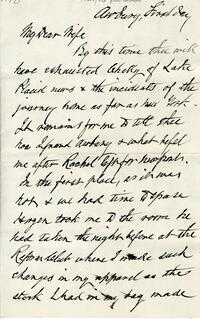 Asbury, First Day
My Dear Wife
By this time thee will
have exhausted Chesty of Lake
Placid news & the incidents of the
journey home as far as New York.
It remains for me to tell thee
how I found Asbury & what befel
me after Rachel left for
In the first place, as it was
hot, & we had time to spare
Hogan took me to the room he
had taken the night before at the
Reform Club where I made such
changes in my apparel as the
stock I had in my bag made